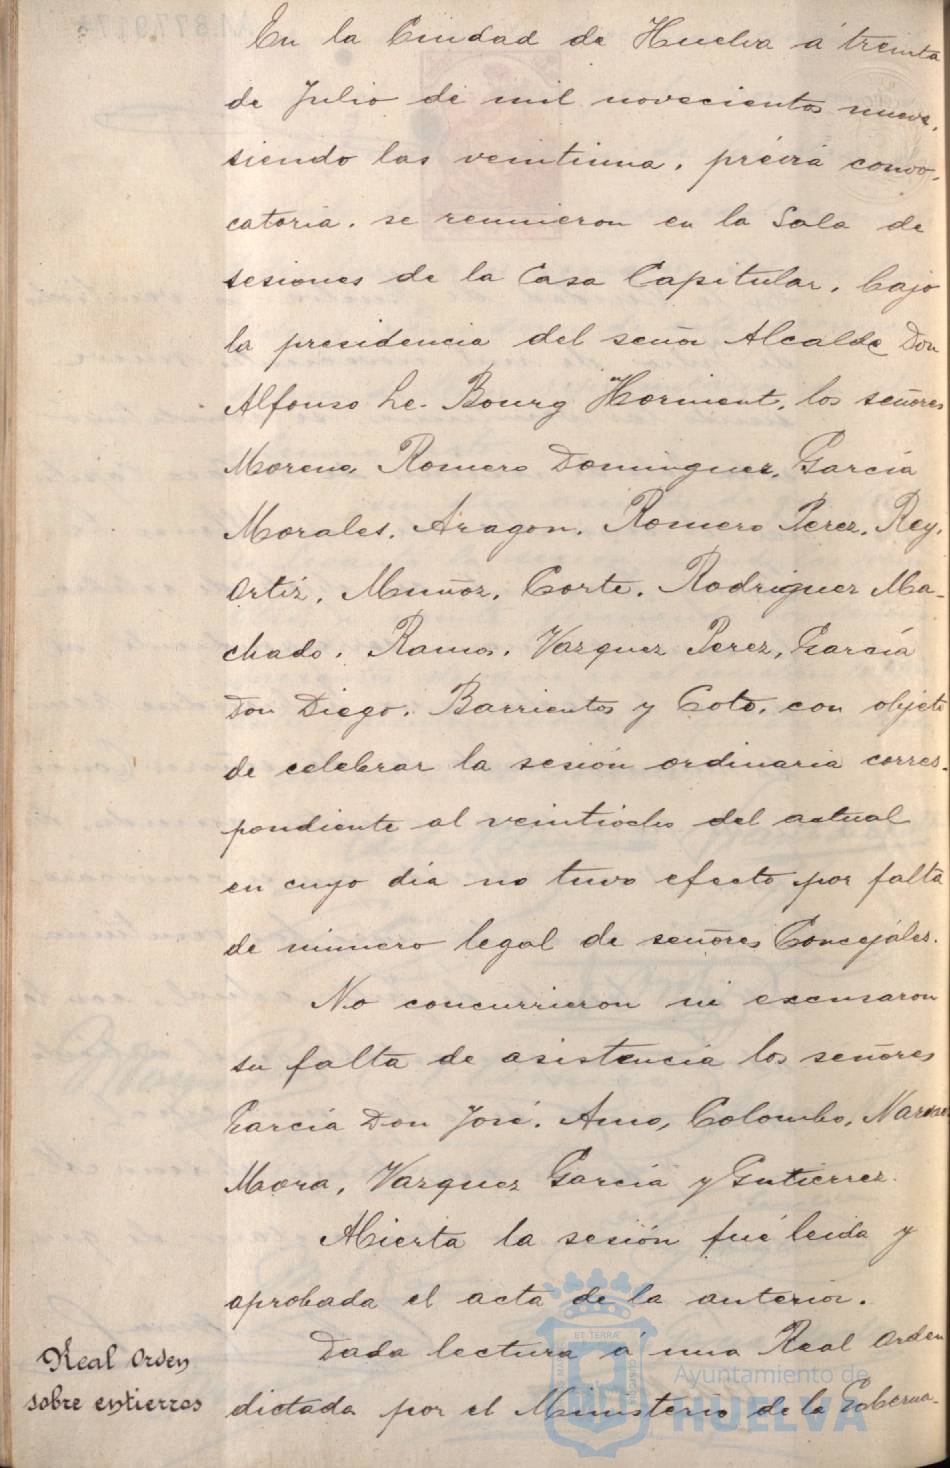 En la Ciudad de Huelva á treinta
de Julio de mil novecientos nueve,
siendo las veintiuna, prévia convo-
catoria, se reunieron en la Sala de
sesiones de la Casa Capitular, bajo
la presidencia del señor Alcalde Don
Alfonso Le-Bourg Horment, los señores
Moreno, Romero Dominguez, García
Morales, Aragon, Romero Perez, Rey,
Ortiz, Muñoz, Corte, Rodriguez Ma-
chado, Ramos, Vazquez Perez, García
Don Diego, Barrientos y Coto, con objeto
de celebrar la sesión ordinaria corres-
pondiente al veintiocho del actual
en cuyo dia no tuvo efecto por falta
de número legal de señores Concejales.
No concurrieron ni excusaron
su falta de asistencia los señores
García Don José, Amo, Colombo,
Mora, Vazquez García y Gutierrez.
Abierta la sesión fué leida y
aprobada el acta de la anterior.
Dada lectura á una Real Orden
dictada por el Ministerio de la Goberna-
Real Orden
sobre entierros
Ayuntamiento de
HUELVA